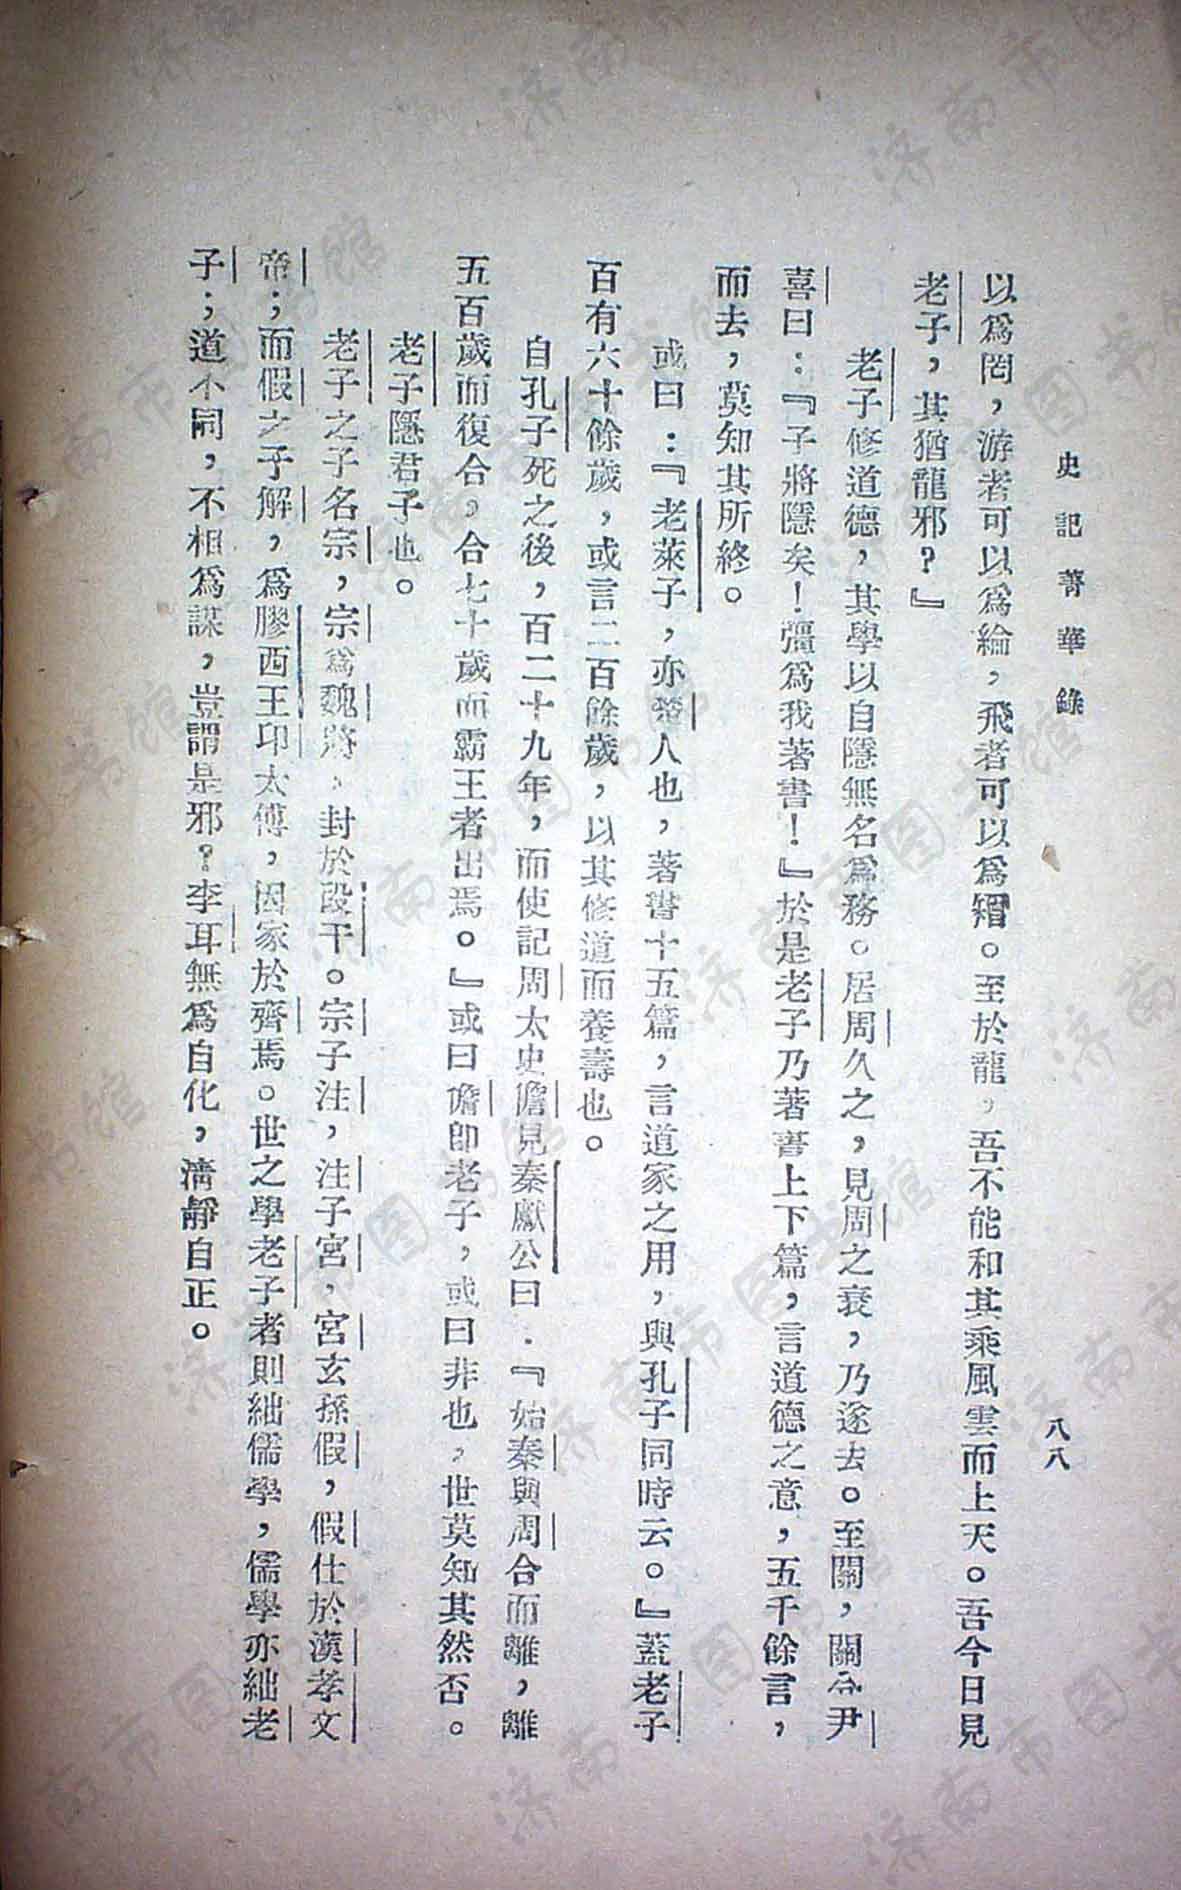 史記菁華錄
八八
以爲罔，游者可以爲綸，飛者可以爲矰。至於龍，吾不能和其乘風雲而上天。吾今日見
老子，其猶龍邪？』
老子修道德，其學以自隱無名爲務。居周久之，見周之衰，乃遂去。至關，關令尹
喜曰：『子將隱矣！彊爲我著書！』於是老子乃著書上下篇，言道德之意，五千餘言，
而去，莫知其所終。
或曰：『老萊子，亦楚人也，著書十五篇，言道家之用，與孔子同時云。』蓋老子
百有六十餘歲，或言二百餘歲，以其修道而養壽也。
自孔子死之後，百二十九年，而使記周太史儋見秦獻公曰：『始秦與周合而離，離
五百歲而復合。合七十歲而霸王者出焉。』或曰儋卽老子，或曰非也，世莫知其然否。
老子隱君子也。
老子之子名宗，宗爲魏將，封於段干。宗子注，注子宮，宮玄孫假，假仕於漢孝文
帝；而假之子解，爲膠西王印太傅，因家於齊焉。世之學老子者則絀儒學，儒學亦絀老
子；道不同，不相爲謀，豈謂是邪？李耳無爲自化，清靜自正。
济南市图书馆